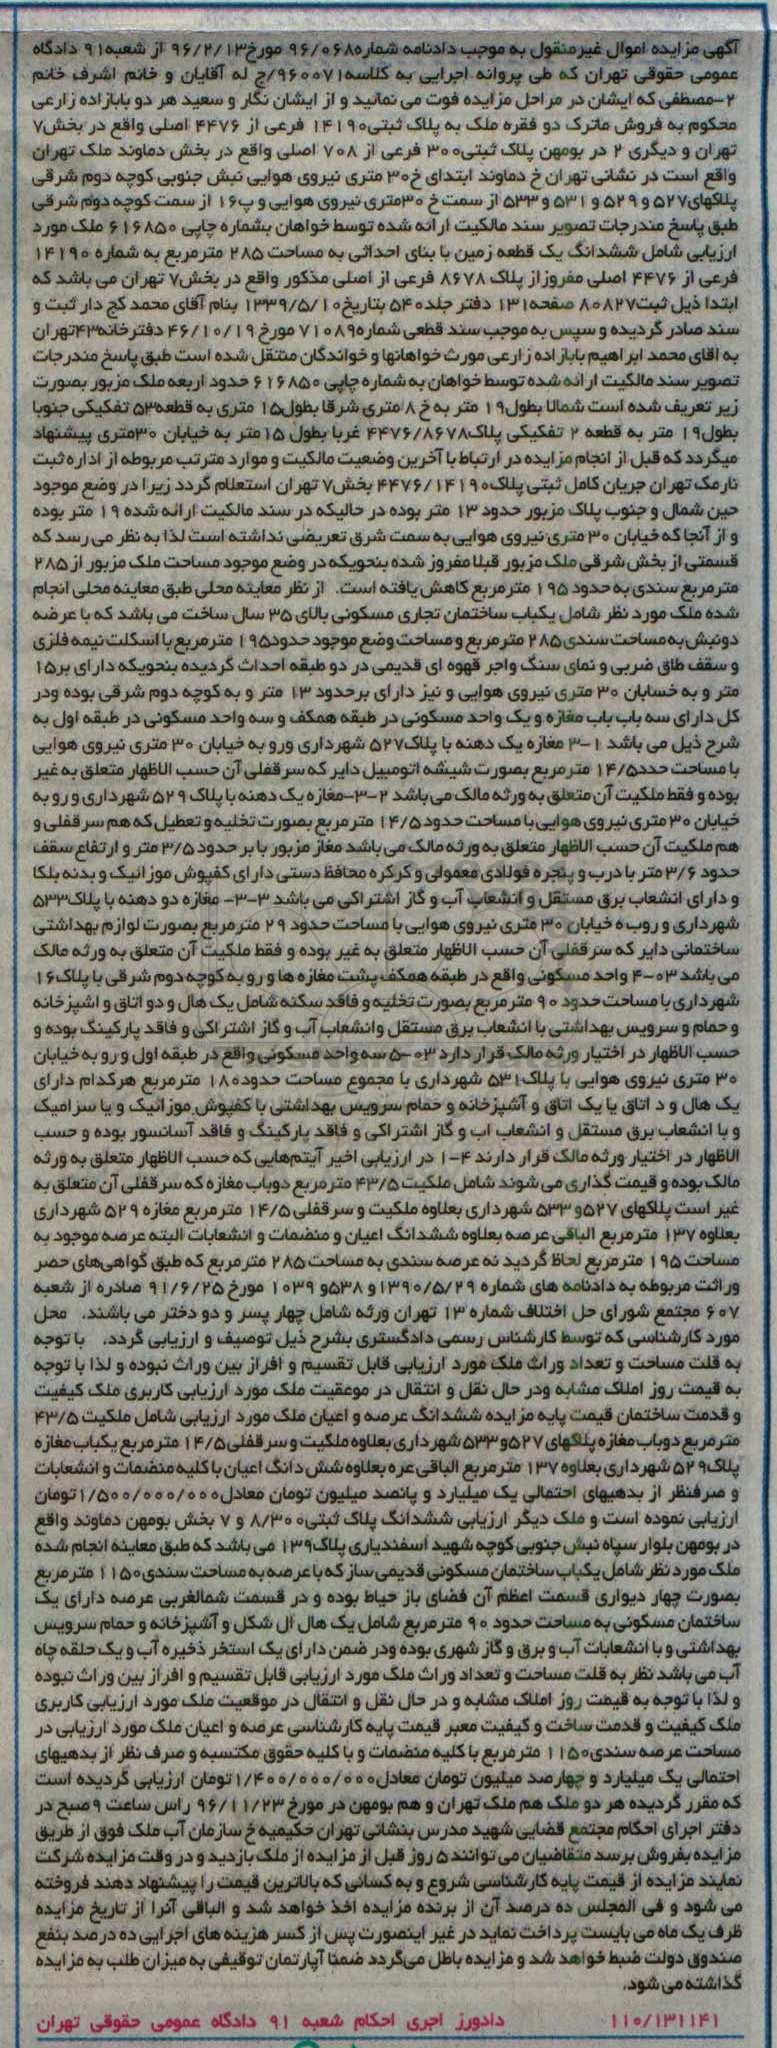 آگهی مزایده اموال غیرمنقول به موجب دادنامه شماره۹۶/۰۶۸ مورخ۹۶/۲/۱۳ از شعبه۹۱ دادگاه
عمومی حقوقی تهران که طی پروانه اجرایی به کلاسه۹۶۰۰۷۱/ج له آقایان و خانم اشرف خانم
۲-مصطفی که ایشان در مراحل مزایده فوت می نمائید و از ایشان نگار و سعید هر دو بابازاده زارعی
محکوم به فروش ماترک دو فقره ملک به پلاک ثبتی۱۴۱۹۰ فرعی از ۴۴۷۶ اصلی واقع در بخش۷
تهران و دیگری ۲ در بومهن پلاک ثبتی۳۰۰ فرعی از ۷۰۸ اصلی واقع در بخش دماوند ملک تهران
واقع است در نشانی تهران خ دماوند ابتدای خ۳۰ متری نیروی هوایی نبش جنوبی کوچه دوم شرقی
پلاکهای۵۲۷ و ۵۲۹ و ۵۳۱ و ۵۳۳ از سمت خ ۳۰متری نیروی هوایی و پ۱۶ از سمت کوچه دوم شرقی
طبق پاسخ مندرجات تصویر سند مالکیت ارائه شده توسط خواهان بشماره چاپی ۶۱۶۸۵۰ ملک مورد
ارزیابی شامل ششدانگ یک قطعه زمین با بنای احداثی به مساحت ۲۸۵ مترمربع به شماره ۱۴۱۹۰
فرعی از ۴۴۷۶ اصلی مفروز از پلاک ۸۶۷۸ فرعی از اصلی مذکور واقع در بخش۷ تهران می باشد که
ابتدا ذیل ثبت۸۰۸۲۷ صفحه۱۳۱ دفتر جلد۵۴۰ بتاریخ۱۳۳۹/۵/۱۰ بنام آقای محمد کج دار ثبت و
سند صادر گردیده و سپس به موجب سند قطعی شماره۷۱۰۸۹ مورخ ۴۶/۱۰/۱۹ دفترخانه۴۳تهران
به اقای محمد ابراهیم بابازاده زارعی مورث خواهانها و خواندگان منتقل شده است طبق پاسخ مندرجات
تصویر سند مالکیت ارائه شده توسط خواهان به شماره چاپی ۶۱۶۸۵۰ حدود اربعه ملک مزبور بصورت
زیر تعریف شده است شمالا بطول۱۹ متر به خ ۸ متری شرقا بطول۱۵ متری به قطعه۵۳ تفکیکی جنوبا
بطول۱۹ متر به قطعه ۲ تفکیکی پلاک۴۴۷۶/۸۶۷۸ غربا بطول ۱۵متر به خیابان ۳۰متری پیشنهاد
میگردد که قبل از انجام مزایده در ارتباط با آخرین وضعیت مالکیت و موارد مترتب مربوطه از اداره ثبت
نارمک تهران جریان کامل ثبتی پلاک۴۴۷۶/۱۴۱۹۰ بخش۷ تهران استعلام گردد زیرا در وضع موجود
حین شمال و جنوب پلاک مزبور حدود ۱۳ متر بوده در حالیکه در سند مالکیت ارائه شده ۱۹ متر بوده
و از آنجا که خیابان ۳۰ متری نیروی هوایی به سمت شرق تعریضی نداشته است لذا به نظر می رسد که
قسمتی از بخش شرقی ملک مزبور قبلا مفروز شده بنحویکه در وضع موجود مساحت ملک مزبور از ۲۸۵
مترمربع سندی به حدود ۱۹۵ مترمربع کاهش یافته است. از نظر معاینه محلی طبق معاینه محلی انجام
شده ملک مورد نظر شامل یکباب ساختمان تجاری مسکونی بالای ۳۵ سال ساخت می باشد که با عرصه
دونبش به مساحت سندی ۲۸۵ مترمربع و مساحت وضع موجود حدود۱۹۵ مترمربع با اسکلت نیمه فلزی
و سقف طاق ضربی و نمای سنگ واجر قهوه ای قدیمی در دو طبقه احداث گردیده بنحویکه دارای بر۱۵
متر و به خسابان ۳۰ متری نیروی هوایی و نیز دارای برحدود ۱۳ متر و به کوچه دوم شرقی بوده ودر
کل دارای سه باب باب مغازه و یک واحد مسکونی در طبقه همکف و سه واحد مسکونی در طبقه اول به
شرح ذیل می باشد ۱-۳ مغازه یک دهنه با پلاک۵۲۷ شهرداری ورو به خیابان ۳۰ متری نیروی هوایی
با مساحت حدد۱۴/۵ مترمربع بصورت شیشه اتومبیل دایر که سرقفلی آن حسب الاظهار متعلق به غیر
بوده و فقط ملکیت آن متعلق به ورثه مالک می باشد ۲-۳-مغازه یک دهنه با پلاک ۵۲۹ شهرداری و رو به
خیابان ۳۰ متری نیروی هوایی با مساحت حدود ۱۴/۵ مترمربع بصورت تخلیه و تعطیل که هم سرقفلی و
هم ملکیت آن حسب الاظهار متعلق به ورثه مالک می باشد مغاز مزبور با بر حدود ۳/۵ متر و ارتفاع سقف
حدود ۳/۶ متر با درب و پنجره فولادی معمولی و کرکره محافظ دستی دارای کفپوش موزائیک و بدنه بلکا
و دارای انشعاب برق مستقل و انشعاب آب و گاز اشتراکی می باشد ۳-۳- مغازه دو دهنه با پلاک۵۳۳
شهرداری و روب ه خیابان ۳۰ متری نیروی هوایی با مساحت حدود ۲۹ مترمربع بصورت لوازم بهداشتی
ساختمانی دایر که سرقفلی آن حسب الاظهار متعلق به غیر بوده و فقط ملکیت آن متعلق به ورثه مالک
می باشد ۰۳-۴ واحد مسکونی واقع در طبقه همکف پشت مغازه ها و رو به کوچه دوم شرقی با پلاک۱۶
شهرداری با مساحت حدود ۹۰ مترمربع بصورت تخلیه و فاقد سکنه شامل یک هال و دو اتاق و اشپزخانه
و حمام و سرویس بهداشتی با انشعاب برق مستقل وانشعاب آب و گاز اشتراکی و فاقد پارکینگ بوده و
حسب الاظهار در اختیار ورثه مالک قرار دارد ۰۳-۵ سه واحد مسکونی واقع در طبقه اول و رو به خیابان
۳۰ متری نیروی هوایی با پلاک۵۳۱ شهرداری با مجموع مساحت حدود۱۸۰ مترمربع هرکدام دارای
یک هال و د اتاق یا یک اتاق و آشپزخانه و حمام سرویس بهداشتی با کفپوش موزائیک و یا سرامیک
و با انشعاب برق مستقل و انشعاب اب و گاز اشتراکی و فاقد پارکینگ و فاقد آسانسور بوده و حسب
الاظهار در اختیار ورثه مالک قرار دارند ۴-۱ در ارزیابی اخیر آیتم‌هایی که حسب الاظهار متعلق به ورثه
مالک بوده و قیمت گذاری می شوند شامل ملکیت ۴۳/۵ مترمربع دوباب مغازه که سرقفلی آن متعلق به
غیر است پلاکهای ۵۲۷و ۵۳۳ شهرداری بعلاوه ملکیت و سرقفلی ۱۴/۵ مترمربع مغازه ۵۲۹ شهرداری
بعلاوه ۱۳۷ مترمربع الباقی عرصه بعلاوه ششدانگ اعیان و منضمات و انشعابات البته عرصه موجود به
مساحت ۱۹۵ مترمربع لحاظ گردید نه عرصه سندی به مساحت ۲۸۵ مترمربع که طبق گواهی‌های حصر
وراثت مربوطه به دادنامه های شماره ۱۳۹۰/۵/۲۹ و ۵۳۸و ۱۰۳۹ مورخ ۹۱/۶/۲۵ صادره از شعبه
۶۰۷ مجتمع شورای حل اختلاف شماره ۱۳ تهران ورثه شامل چهار پسر و دو دختر می باشند. محل
مورد کارشناسی که توسط کارشناس رسمی دادگستری بشرح ذیل توصیف و ارزیابی گردد. با توجه
به قلت مساحت و تعداد وراث ملک مورد ارزیابی قابل تقسیم و افراز بین وراث نبوده و لذا با توجه
به قیمت روز املاک مشابه ودر حال نقل و انتقال در موعقیت ملک مورد ارزیابی کاربری ملک کیفیت
و قدمت ساختمان قیمت پایه مزایده ششدانگ عرصه و اعیان ملک مورد ارزیابی شامل ملکیت ۴۳/۵
مترمربع دوباب مغازه پلاکهای ۵۲۷و۵۳۳ شهرداری بعلاوه ملکیت و سرقفلی ۱۴/۵ مترمربع یکباب مغازه
پلاک۵۲۹ شهرداری بعلاوه ۱۳۷ مترمربع الباقی عره بعلاوه شش دانگ اعیان با کلیه منضمات و انشعابات
و صرفنظر از بدهیهای احتمالی یک میلیارد و پانصد میلیون تومان معادل۱/۵۰۰/۰۰۰/۰۰۰تومان
ارزیابی نموده است و ملک دیگر ارزیابی ششدانگ پلاک ثبتی۸/۳۰۰ و ۷ بخش بومهن دماوند واقع
در بومهن بلوار سپاه نبش جنوبی کوچه شهید اسفندیاری پلاک۱۳۹ می باشد که طبق معاینه انجام شده
ملک مورد نظر شامل یکباب ساختمان مسکونی قدیمی ساز که با عرصه به مساحت سندی۱۱۵۰ مترمربع
بصورت چهار دیواری قسمت اعظم آن فضای باز حیاط بوده و در قسمت شمالغربی عرصه دارای یک
ساختمان مسکونی به مساحت حدود ۹۰ مترمربع شامل یک هال ال شکل و آشپزخانه و حمام سرویس
بهداشتی و با انشعابات آب و برق و گاز شهری بوده ودر ضمن دارای یک استخر ذخیره آب و یک حلقه چاه
آب می باشد نظر به قلت مساحت و تعداد وراث ملک مورد ارزیابی قابل تقسیم و افراز بین وراث نبوده
و لذا با توجه به قیمت روز املاک مشابه و در حال نقل و انتقال در موقعیت ملک مورد ارزیابی کاربری
ملک کیفیت و قدمت ساخت و کیفیت معبر قیمت پایه کارشناسی عرصه و اعیان ملک مورد ارزیابی در
مساحت عرصه سندی۱۱۵۰ مترمربع با کلیه منضمات و با کلیه حقوق مکتسبه و صرف نظر از بدهیهای
احتمالی یک میلیارد و چهارصد میلیون تومان معادل۱/۴۰۰/۰۰۰/۰۰۰تومان ارزیابی گردیده است
که مقرر گردیده هر دو ملک هم ملک تهران و هم بومهن در مورخ ۹۶/۱۱/۲۳ راس ساعت ۹صبح در
دفتر اجرای احکام مجتمع قضایی شهید مدرس بنشانی تهران حکیمیه خ سازمان آب ملک فوق از طریق
مزایده بفروش برسد متقاضیان می توانند ۵ روز قبل از مزایده از ملک بازدید و در وقت مزایده شرکت
نمایند مزایده از قیمت پایه کارشناسی شروع و به کسانی که بالاترین قیمت را پیشنهاد دهند فروخته
می شود و فی المجلس ده درصد آن از برنده مزایده اخذ خواهد شد و الباقی آنرا از تاریخ مزایده
ظرف یک ماه می بایست پرداخت نماید در غیر اینصورت پس از کسر هزینه های اجرایی ده درصد بنفع
صندوق دولت ضبط خواهد شد و مزایده باطل می‌گردد ضمنا آپارتمان توقیفی به میزان طلب به مزایده
گذاشته می شود.
۱۱۰/۱۳۱۱۴۱ دادورز اجری احکام شعبه ۹۱ دادگاه عمومی حقوقی تهران